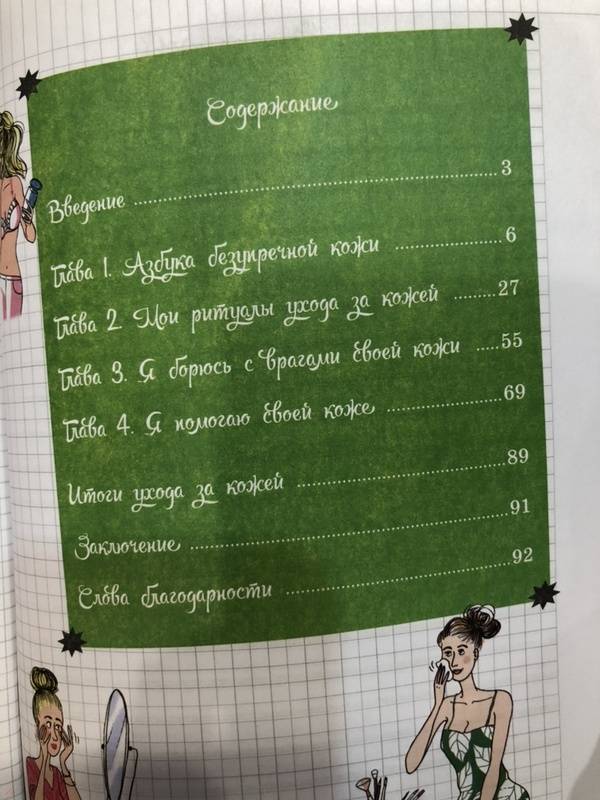 Содержание
Введение ........................................................ 3
Глава 1. Азбука безупречной кожи .................. 6
Глава 2. Мои ритуалы ухода за кожей ......... 27
Глава 3. Я борюсь с врагами своей кожи ..... 55
Глава 4. Я помогаю своей коже .................... 69
Итоги ухода за кожей ................................... 89
Заключение .................................................... 91
Слова благодарности .................................... 92